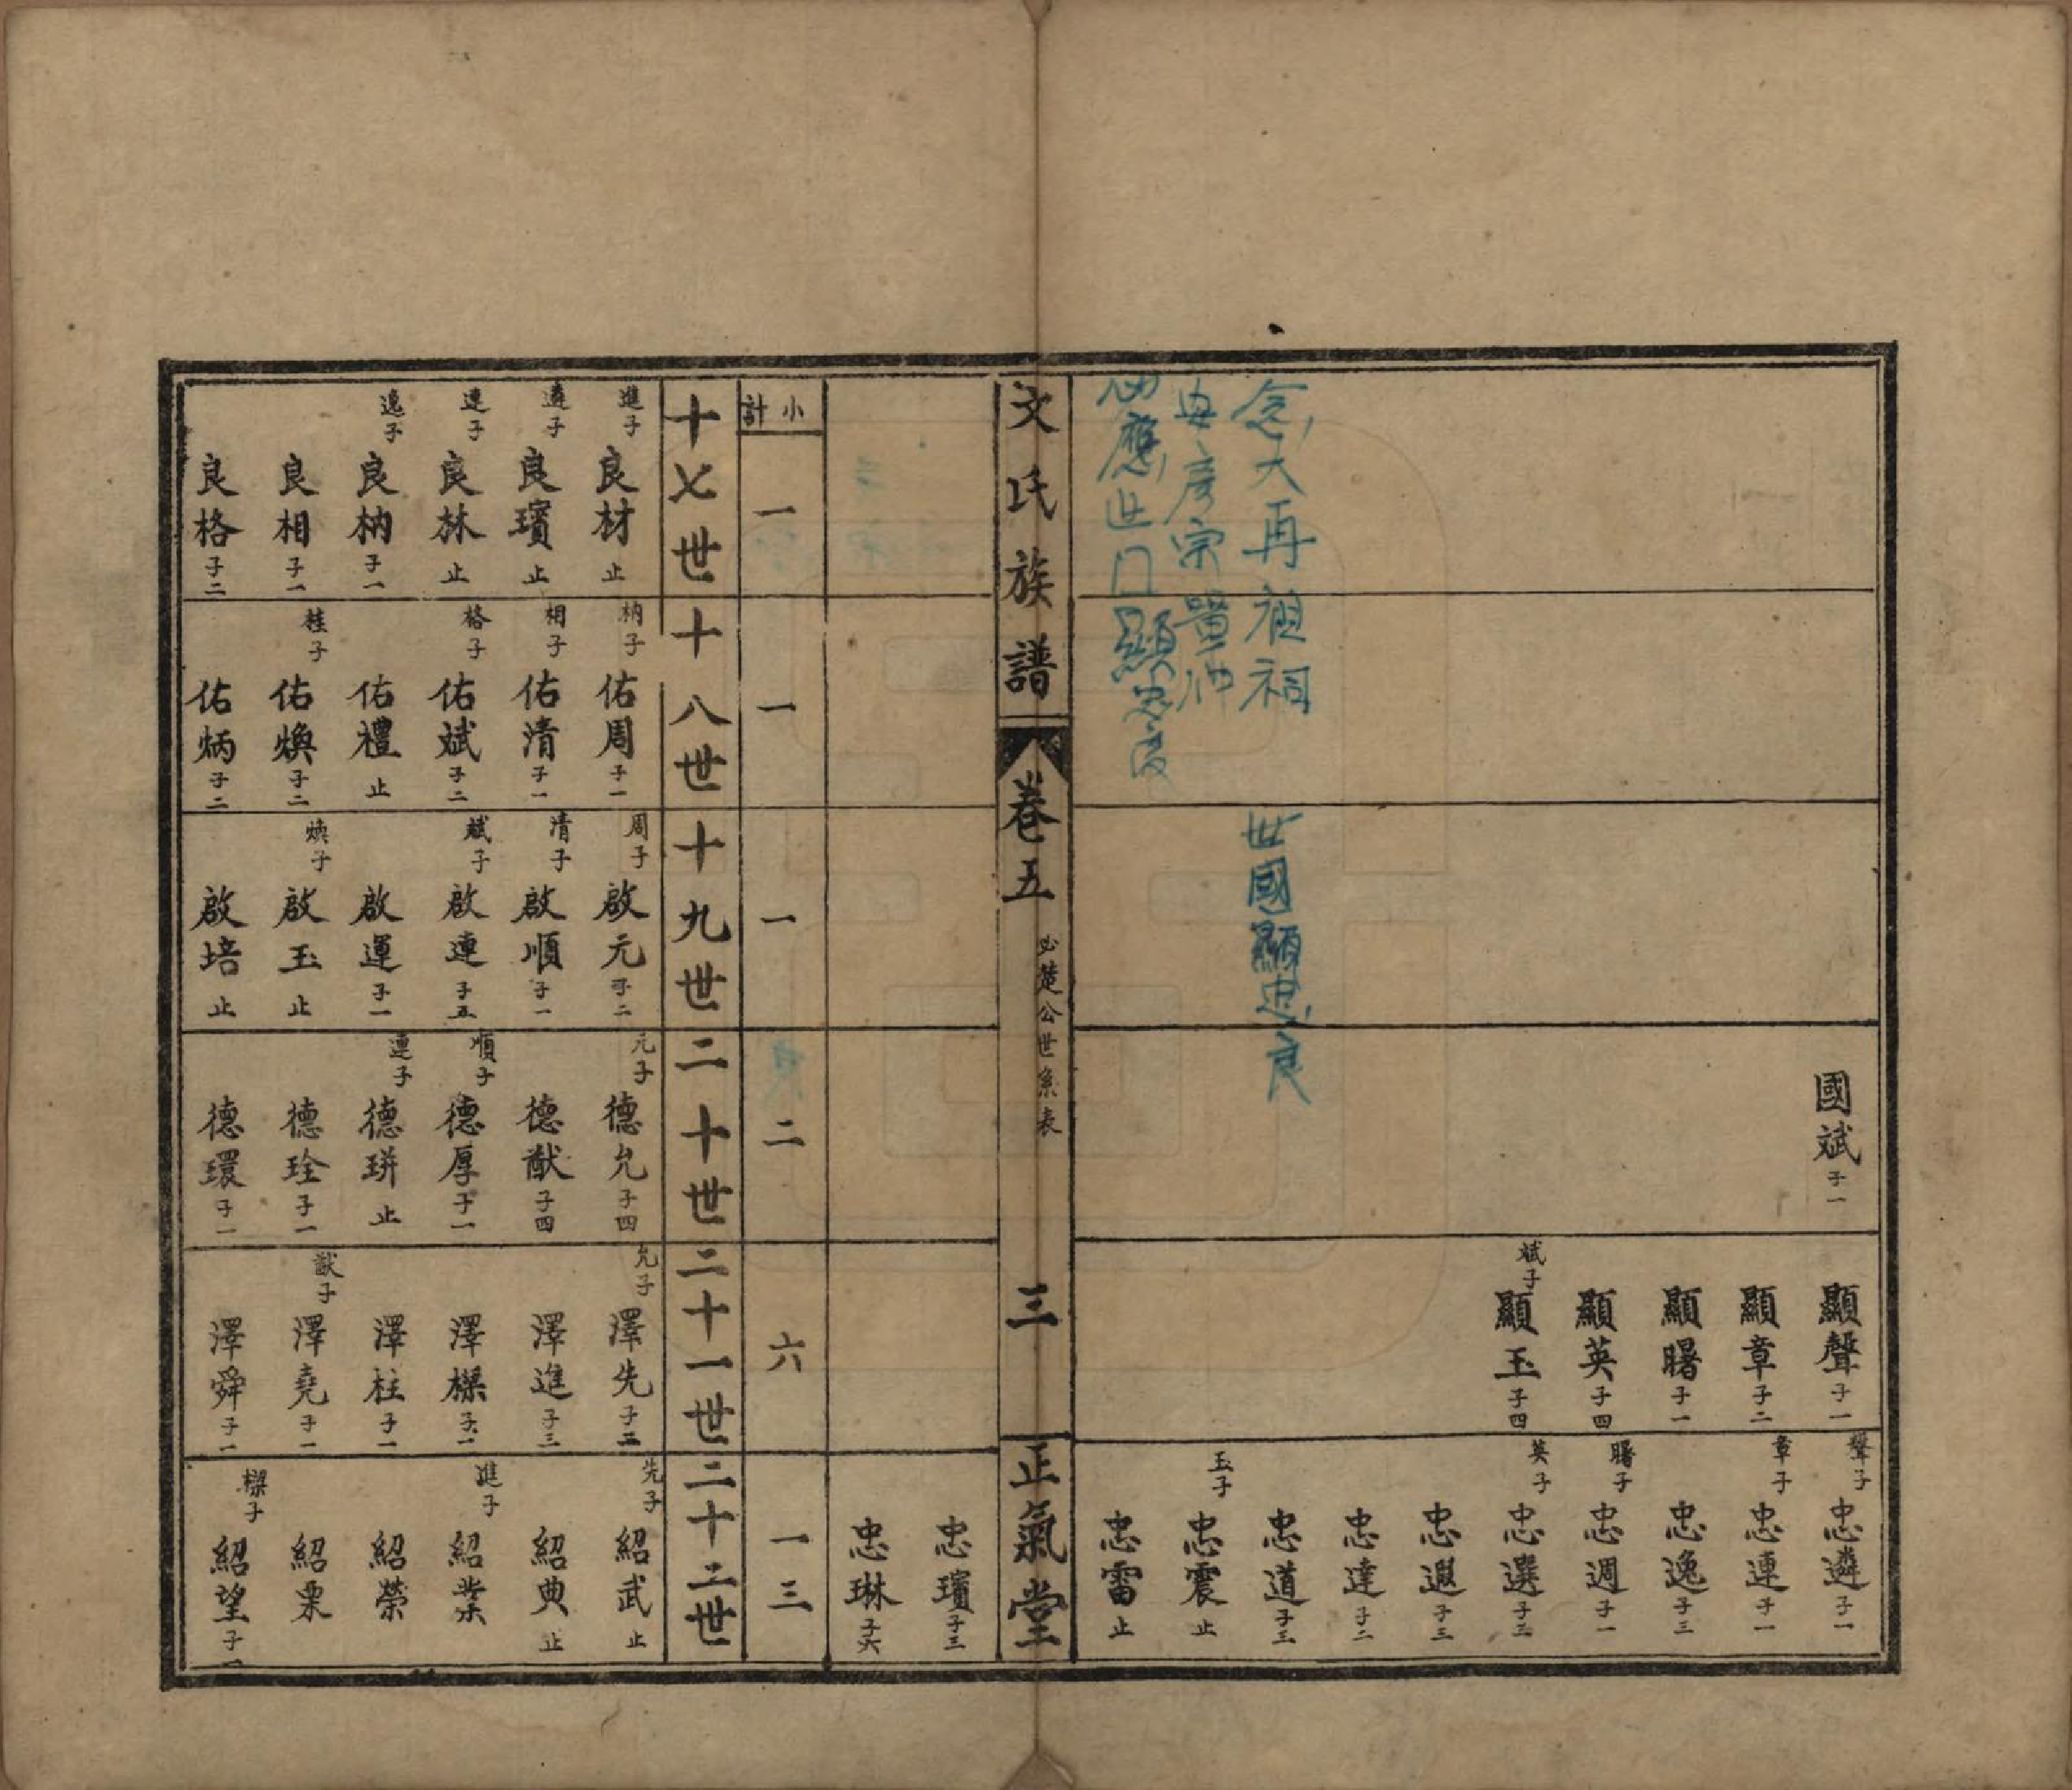 國斌子一
顯聲子一
顯章子二
顯曙子一
顯英子四
斌子
顯玉子四
聲子
忠遴子一
章子
忠連子一
忠逸子三
曙子
忠週子一
英子
忠選子三
忠遐子三
忠達子二
忠道子三
玉子
忠震止
忠雷止
念大再祖祠
世國顯忠良
文氏族譜
卷五
必楚公世系表
三
正氣堂
忠璸子三
忠琳子六
小計
一
一
一
二
六
一三
十七世
進子
良材止
遴子
良璸止
連子
良林止
逸子
良枘子一
良相子一
良格子二
十八世
枘子
佑周子一
相子
佑清子一
格子
佑斌子二
佑禮止
桂子
佑煥子二
佑炳子二
十九世
周子
啟元子二
清子
啟順子一
斌子
啟連子五
啟運子一
煥子
啟玉止
啟培止
二十世
元子
德允子四
德猷子四
順子
德厚子一
連子
德琲止
德玲子一
德環子一
二十一世
允子
澤先子二
澤進子三
澤樑子一
澤柱子一
猷子
澤堯子一
澤舜子一
二十二世
先子
紹武止
紹典止
進子
紹業
紹榮
紹栗
樑子
紹望子一